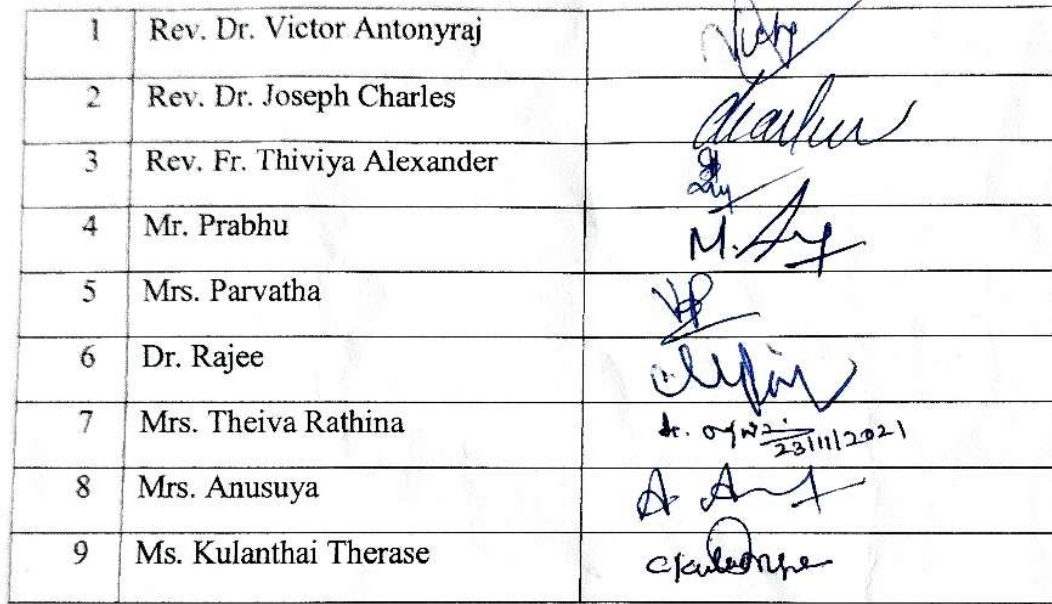 1 Rev. Dr. Victor Antonyraj
2 Rev. Dr. Joseph Charles
3 Rev. Fr. Thiviya Alexander
4 Mr. Prabhu M.
5 Mrs. Parvatha
6 Dr. Rajee
7 Mrs. Theiva Rathina
23/11/2021
8 Mrs. Anusuya A.
9 Ms. Kulanthai Therase